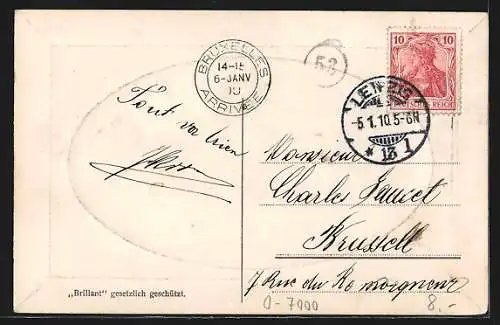 BRUXELLES
14-15
6-JANV
10
ARRIVÉE
53
10 10
REICH
LEIPZIG
-5.1.10.5-6N
* 13 1
Tout va bien
Monsieur
Charles
Brussell
7 Rue du Remorqueur
„Brillant" gesetzlich geschützt.
0-7000
8.-